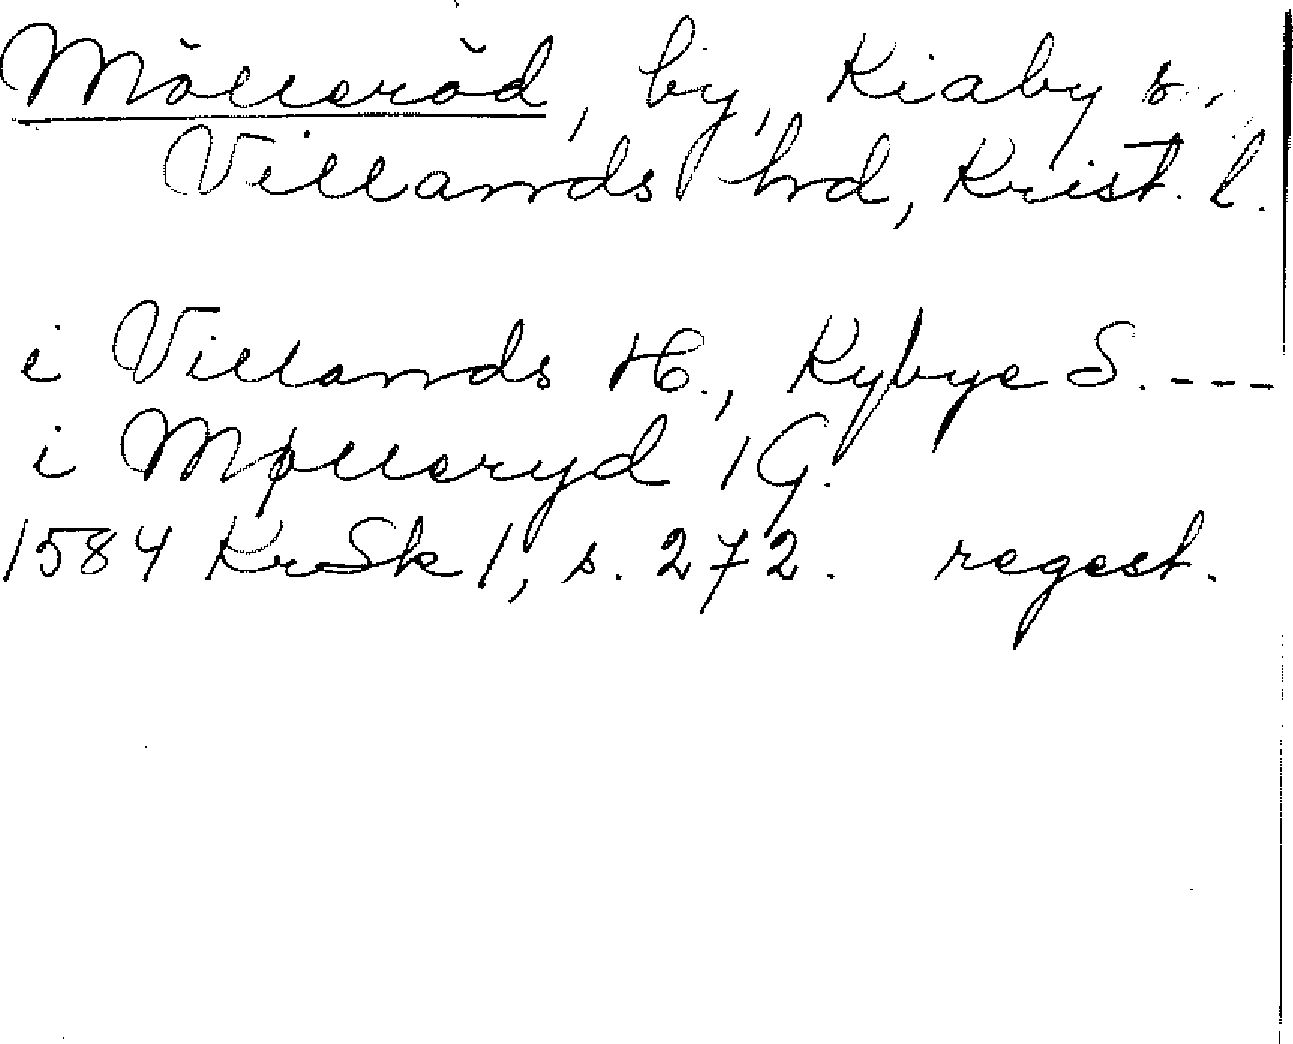 Mölleröd, by, Kiaby s.,
Villands hrd, Krist. l.
i Villands H., Kybye S. ---
i Mølleryd 1 G.
1584 KrSk 1, s. 272. regest.